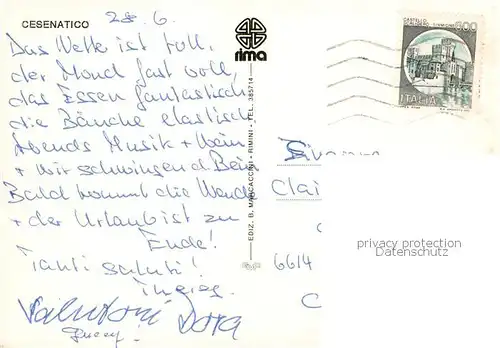 CESENATICO
28. 6.
Das Wette ist toll,
der Mond fast voll,
das Essen fantastisch
die Bäuche elastisch
Abends Musik + Wein
+ wir schwingen d. Bein
Bald kommt die Wende
+ der Urlaub ist zu
Ende!
Tanti saluti!
rima
EDIZ. B. MARCACCINI - RIMINI - TEL. 385714
500
ITALIA
Clai
6614
C
privacy protection
Datenschutz